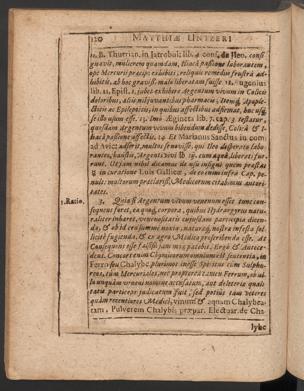 120 MATTHIÆ UNTZERI
11. B. Thurrian. in Jatrobul: lib. 2 conf. de Ileo, consi
gnavit, mulierem quandam, Iliacâ passione laborantem,
ope Mercurii præcip: exhibiti, reliquis remediis frustrà ad-
hibitis, ab hoc gravissi: malo liberatam fuisse 12. Eugenius
lib. 11. Epist. 1. jubet exhibere Argentum vivum in Colicis
doloribus, aliis nil juvantibus pharmacis, item
ctis ac Epilepticis, in quibus affectibus
se illo usum esse. 13. Imò Ægineta lib. 7. cap. 3 testatur,
quosdam Argentum vivum bibendum dedisse, Colicâ & Ili-
acâ passione affectis. 14. Et Marianus Sanctus in com:
ad Avic: asserit, multos servavisse, qui Ileo desperato labo-
rantes, haustis, Argenti vivi lib.
rant. Ut jam nihil dicamus de usu insigni quem præstat
& in curatione Luis Gallicæ, de eo enim infrà Cap.
nuis: multorum præclariss: Medicorum citabimus autori-
tates.
1. Ratio. 3. Quia si Argentum vivum venenum esset, tunc con-
sequens foret, ea quoq, corpora, quibus Hydrargyrus natu-
raliter inhæret, venenositatis cujusdam participia dicen-
da, & ob id conjumine noxia, naturæq, nostræ infesta sol-
licitè fugienda, & ex agro Medico proscribenda esse. At
Consequens esse falsum jam mox patebit, Ergò & Antece-
dens. Concurrenim Chymicorum omnium est sententia, in
Ferro seu Chalybe plurimos inesse Spiritus tum Sulphu-
reos, tum Mercuriales, nec proptereà tamen Ferrum, ob ul-
lo unquam veneni nomine accusatum, aut deleteria quali-
tatis particeps judicatum fuit, sed potius tam veteres
quàm recentiores Medici, vinum & aquam Chalybea-
tam, Pulverem Chalybis præpar. Electuar. de Cha-
lybe